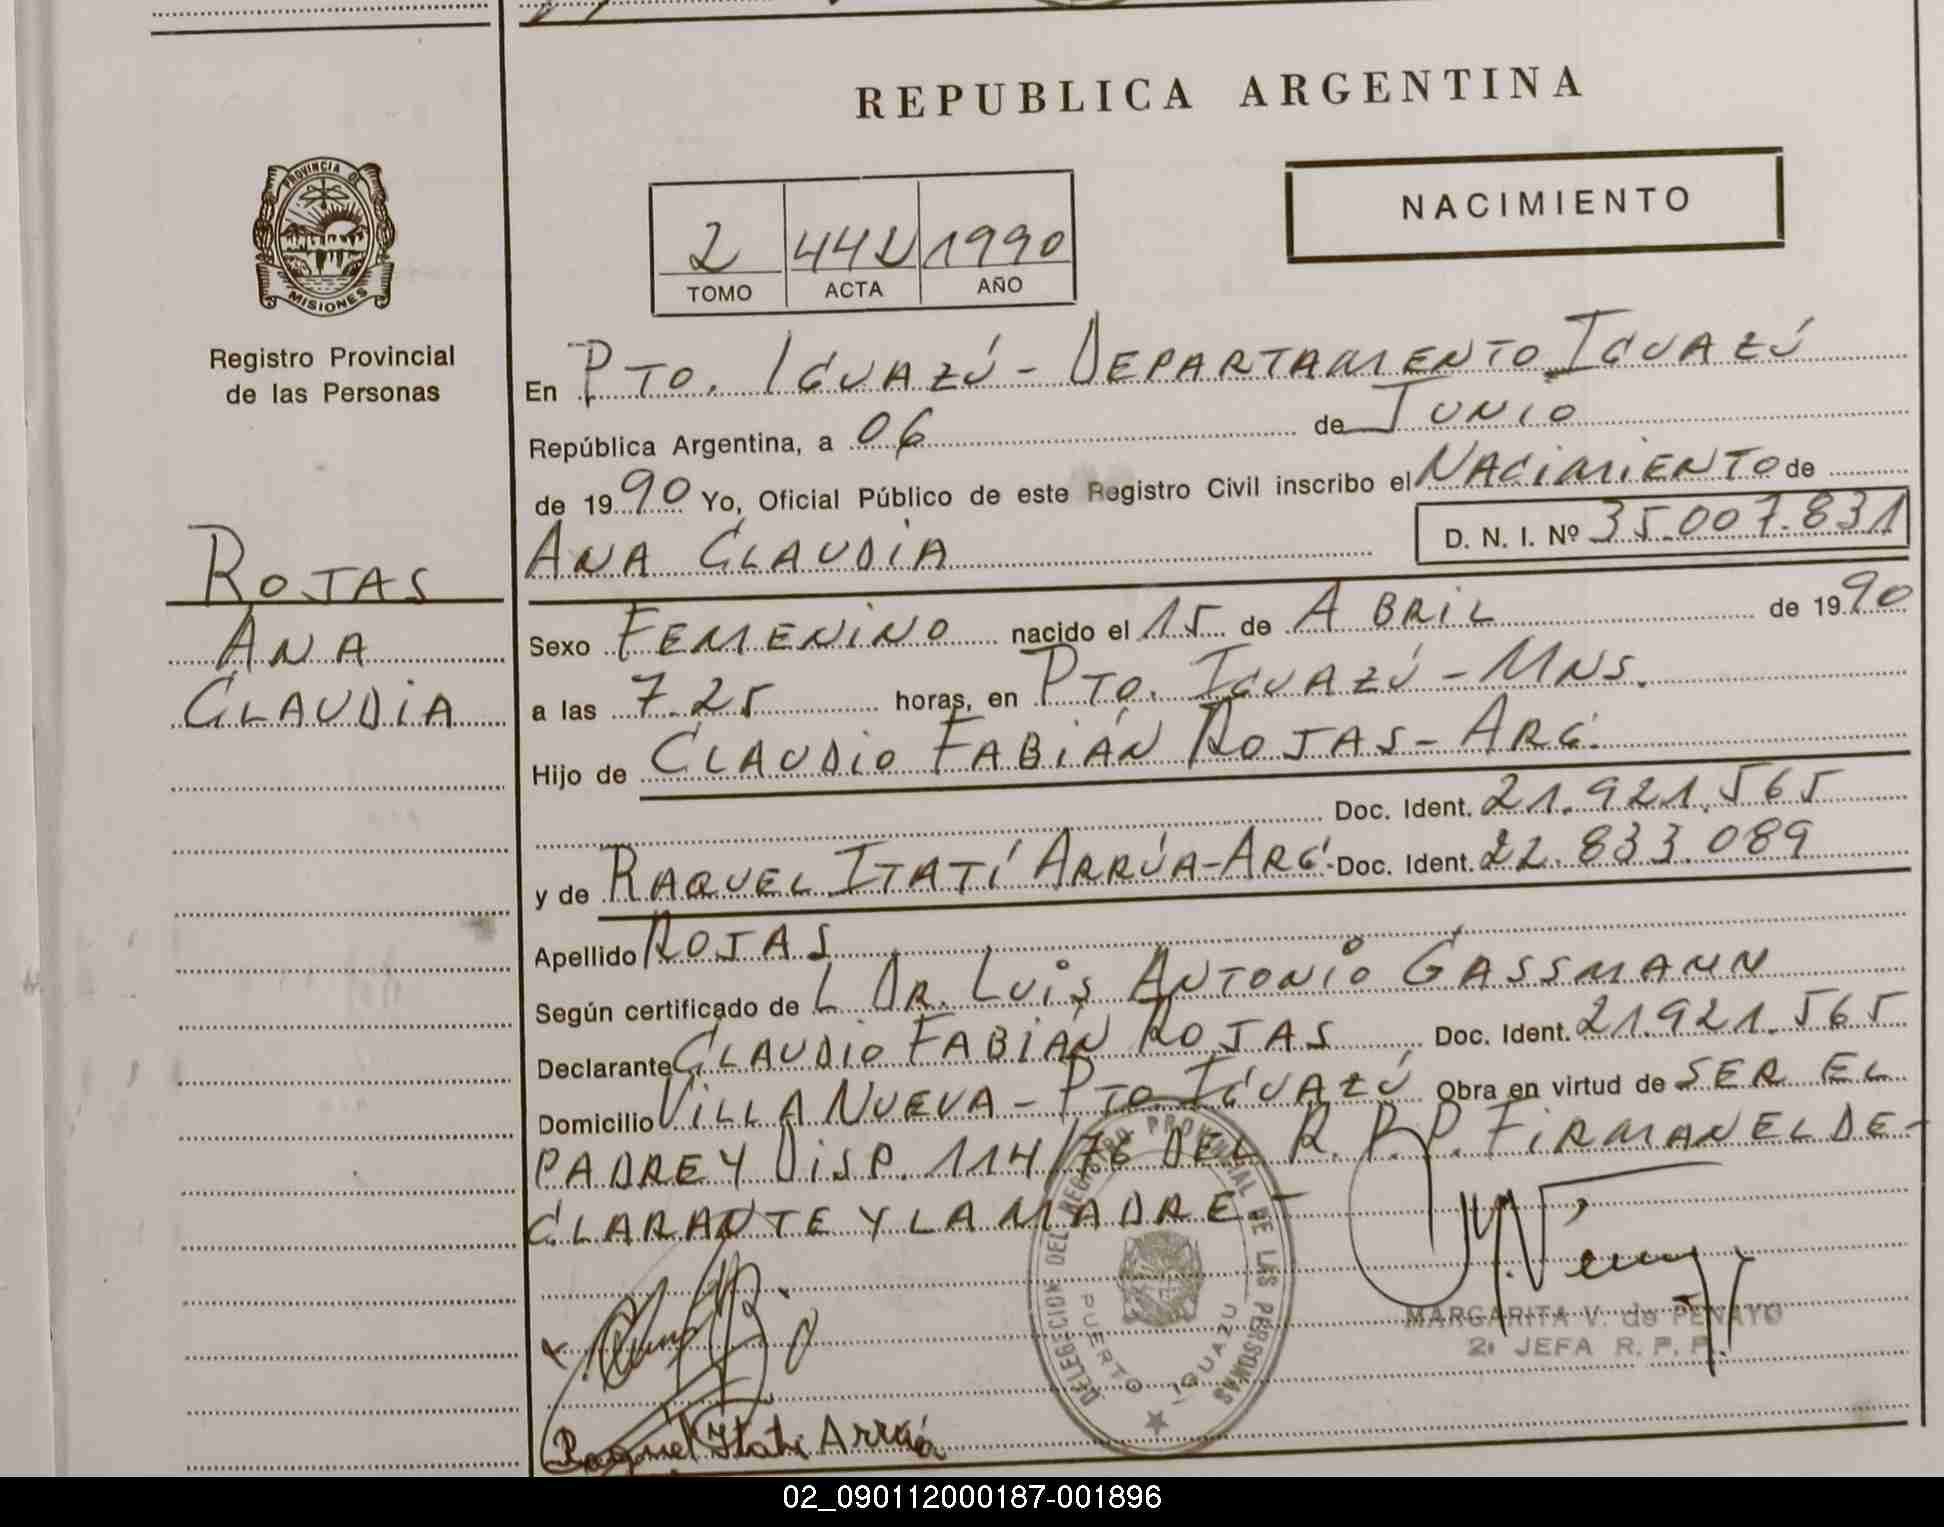 REPUBLICA ARGENTINA
PROVINCIA DE
MISIONES
Registro Provincial
de las Personas
NACIMIENTO
2 442 1990
TOMO ACTA AÑO
En PTO. IGUAZÚ - DEPARTAMENTO IGUAZÚ
República Argentina, a 06 de JUNIO
de 1990 Yo, Oficial Público de este Registro Civil inscribo el NACIMIENTO de
ANA CLAUDIA D. N. I. Nº 35.007.831
ROJAS
ANA
CLAUDIA
Sexo FEMENINO nacido el 15 de ABRIL de 1990
a las 7.25 horas, en PTO. IGUAZÚ - MNS.
Hijo de CLAUDIO FABIÁN ROJAS - ARG.
Doc. Ident. 21.921.565
y de RAQUEL ITATÍ ARRÚA - ARG. Doc. Ident. 22.833.089
Apellido ROJAS
Según certificado de L DR. LUIS ANTONIO GASSMANN
Declarante CLAUDIO FABIÁN ROJAS Doc. Ident. 21.921.565
Domicilio VILLA NUEVA - PTO. IGUAZÚ Obra en virtud de SER EL
PADRE Y DISP. 114/78 DEL R. P. P. FIRMAN EL DE-
CLARANTE Y LA MADRE -
DELEGACION DEL REGISTRO PROVINCIAL DE LAS PERSONAS
PUERTO IGUAZU
MARGARITA V. de PENAYO
2ª JEFA R. P. P.
Raquel Itatí Arrúa
02_090112000187-001896